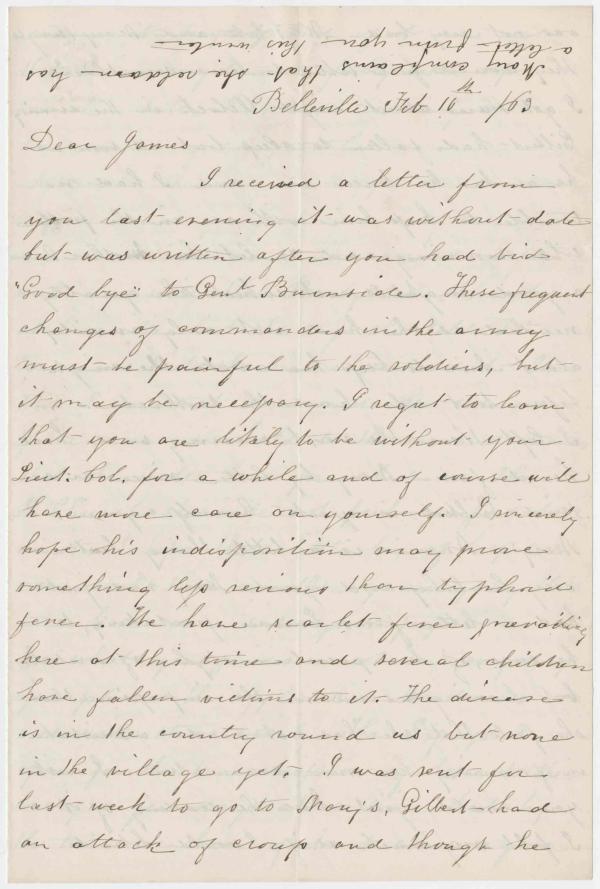 Mary complains that she seldom has
a letter from you this winter
Belleville Feb 10th /63
Dear James
I received a letter from
you last evening it was without date
but was written after you had bid
"Good bye" to Genl Burnside. These frequent
changes of commanders in the army
must be painful to the soldiers, but
it may be necessary. I regret to learn
that you are likely to be without your
Lieut. Col. for a while and of course will
have more care on yourself. I sincerely
hope his indisposition may prove
something less serious than typhoid
fever. We have scarlet fever prevailing
here at this time and several children
have fallen victims to it. The disease
is in the country round us but none
in the village yet. I was sent for
last week to go to Mary's, Gilbert had
an attack of croup and though he